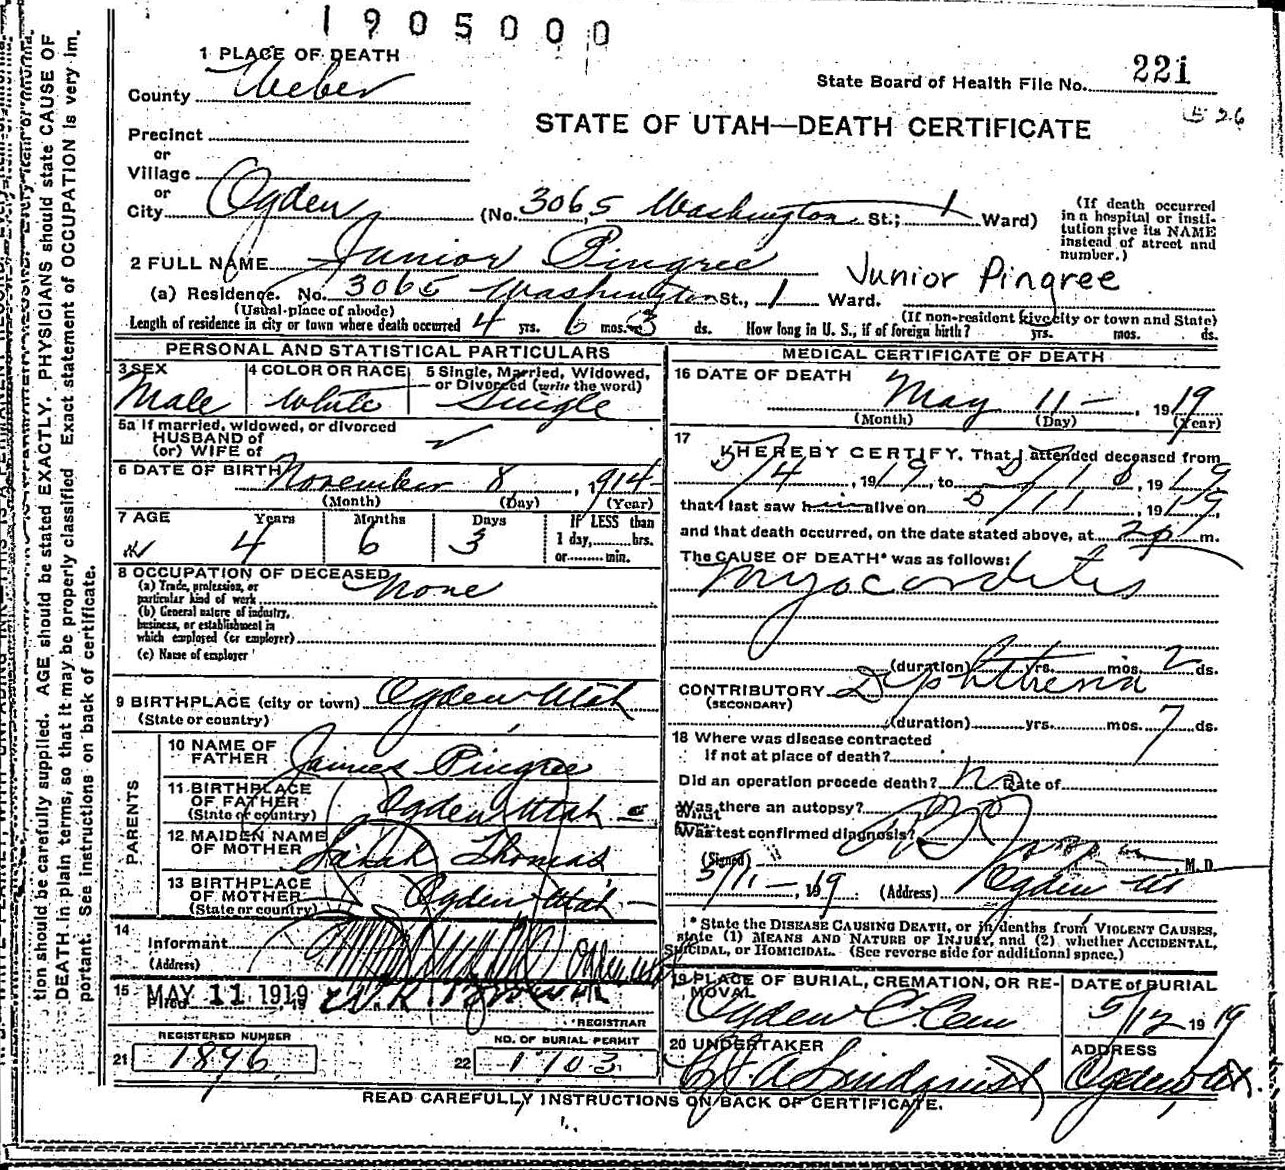 1905000
1 PLACE OF DEATH
County Weber
State Board of Health File No. 221
526
Precinct
or
Village
or
City Ogden
STATE OF UTAH—DEATH CERTIFICATE
(No. 3065 Washington St.; 1 Ward)
(If death occurred in a hospital or insti-
tution give its NAME
instead of street and
number.)
2 FULL NAME Junior Pingree
Junior Pingree
(a) Residence. No. 3065 Washington St., 1 Ward.
(Usual place of abode)
(If non-resident give city or town and State)
Length of residence in city or town where death occurred 4 yrs. 6 mos. 3 ds. How long in U. S., if of foreign birth? yrs. mos. ds.
PERSONAL AND STATISTICAL PARTICULARS
3 SEX
Male
4 COLOR OR RACE
White
5 Single, Married, Widowed,
or Divorced (write the word)
Single
5a If married, widowed, or divorced
HUSBAND of
(or) WIFE of
6 DATE OF BIRTH November 8, 1914
(Month) (Day) (Year)
7 AGE Years Months Days
4 6 3
IF LESS than
1 day, hrs.
or min.
8 OCCUPATION OF DECEASED
(a) Trade, profession, or
particular kind of work None
(b) General nature of industry,
business, or establishment in
which employed (or employer)
(c) Name of employer
9 BIRTHPLACE (city or town) Ogden Utah
(State or country)
PARENTS
10 NAME OF
FATHER James Pingree
11 BIRTHPLACE
OF FATHER Ogden Utah
(State or country)
12 MAIDEN NAME
OF MOTHER Sarah Thomas
13 BIRTHPLACE
OF MOTHER Ogden Utah
(State or country)
14
Informant
(Address)
15 Filed MAY 11 1919
REGISTRAR
REGISTERED NUMBER
21 1896
NO. OF BURIAL PERMIT
22 1703
MEDICAL CERTIFICATE OF DEATH
16 DATE OF DEATH
May 11 — , 1919
(Month) (Day) (Year)
17
I HEREBY CERTIFY, That I attended deceased from
5/4, 1919, to 5/11, 1919
that I last saw him alive on 5/11, 1919,
and that death occurred, on the date stated above, at 2 p m.
The CAUSE OF DEATH* was as follows:
Myocarditis
(duration) yrs. mos. 2 ds.
CONTRIBUTORY Diphtheria
(SECONDARY)
(duration) yrs. mos. 7 ds.
18 Where was disease contracted
if not at place of death?
Did an operation precede death? No Date of
Was there an autopsy?
What test confirmed diagnosis?
(Signed) M.D.
5/11 — , 1919 (Address) Ogden Ut
* State the DISEASE CAUSING DEATH, or in deaths from VIOLENT CAUSES,
state (1) MEANS AND NATURE OF INJURY, and (2) whether ACCIDENTAL,
SUICIDAL, or HOMICIDAL. (See reverse side for additional space.)
19 PLACE OF BURIAL, CREMATION, OR RE-
MOVAL
Ogden C. Cem
DATE of BURIAL
5/12 1919
20 UNDERTAKER
Lindquist
ADDRESS
Ogden, Ut.
READ CAREFULLY INSTRUCTIONS ON BACK OF CERTIFICATE.
tion should be carefully supplied. AGE should be stated EXACTLY. PHYSICIANS should state CAUSE OF
DEATH in plain terms, so that it may be properly classified. Exact statement of OCCUPATION is very im-
portant. See instructions on back of certificate.